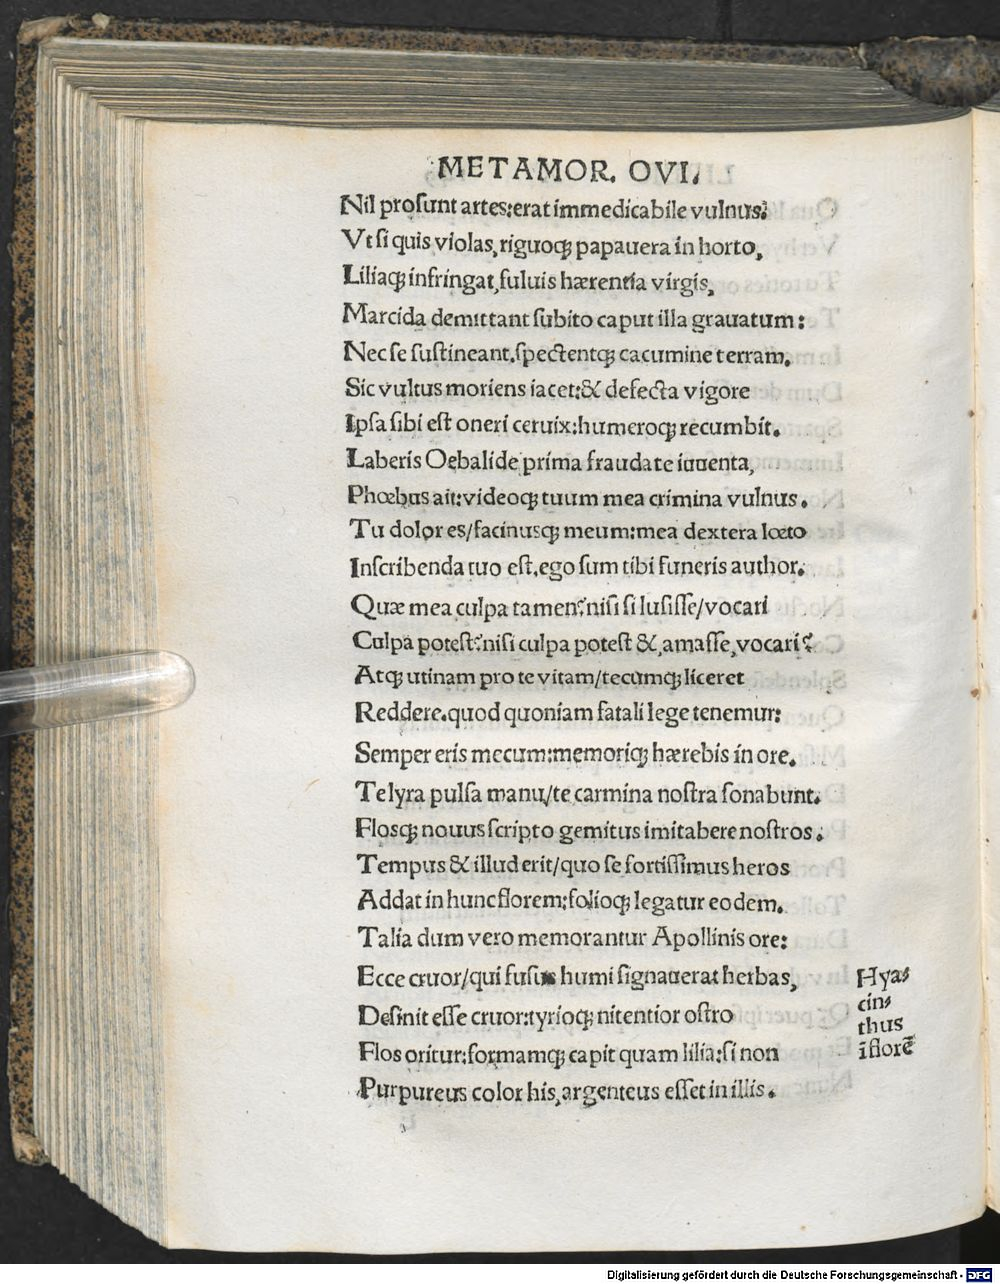 METAMOR. OVI.
Nil proſunt artes:erat immedicabile vulnus.
Vt ſi quis violas, riguoqꝫ papauera in horto,
Liliaqꝫ infringat, fuluis hærentia virgis,
Marcida demittant ſubito caput illa grauatum:
Nec ſe ſuſtineant.ſpectentqꝫ cacumine terram.
Sic vultus moriens iacet:& defecta vigore
Ipſa ſibi eſt oneri ceruix:humeroqꝫ recumbit.
Laberis Oebalide prima fraudate iuuenta,
Phœbus ait:videoqꝫ tuum mea crimina vulnus.
Tu dolor es/facinusqꝫ meum:mea dextera lœto
Inſcribenda tuo eſt.ego ſum tibi funeris author.
Quæ mea culpa tamen?niſi ſi luſiſſe/vocari
Culpa poteſt?niſi culpa poteſt &,amaſſe,vocari?
Atqꝫ utinam pro te vitam/tecumqꝫ liceret
Reddere.quod quoniam fatali lege tenemur:
Semper eris mecum:memoriqꝫ hærebis in ore.
Te lyra pulſa manu/te carmina noſtra ſonabunt.
Flosqꝫ nouus ſcripto gemitus imitabere noſtros.
Tempus & illud erit/quo ſe fortiſſimus heros
Addat in hunc florem:folioqꝫ legatur eodem.
Talia dum vero memorantur Apollinis ore:
Ecce cruor/qui fuſus humi ſignauerat herbas,
Deſinit eſſe cruor:tyrioqꝫ nitentior oſtro
Flos oritur:formamqꝫ capit quam lilia:ſi non
Purpureus color his,argenteus eſſet in illis.
Hyaꞩ
cinꞩ
thus
ĩflorẽ
Digitalisierung gefördert durch die Deutsche Forschungsgemeinschaft - DFG